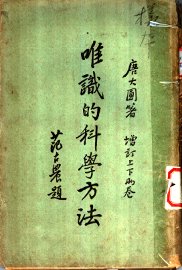 唐大圓著 增訂上下兩卷
唯識的科學方法
范古農題